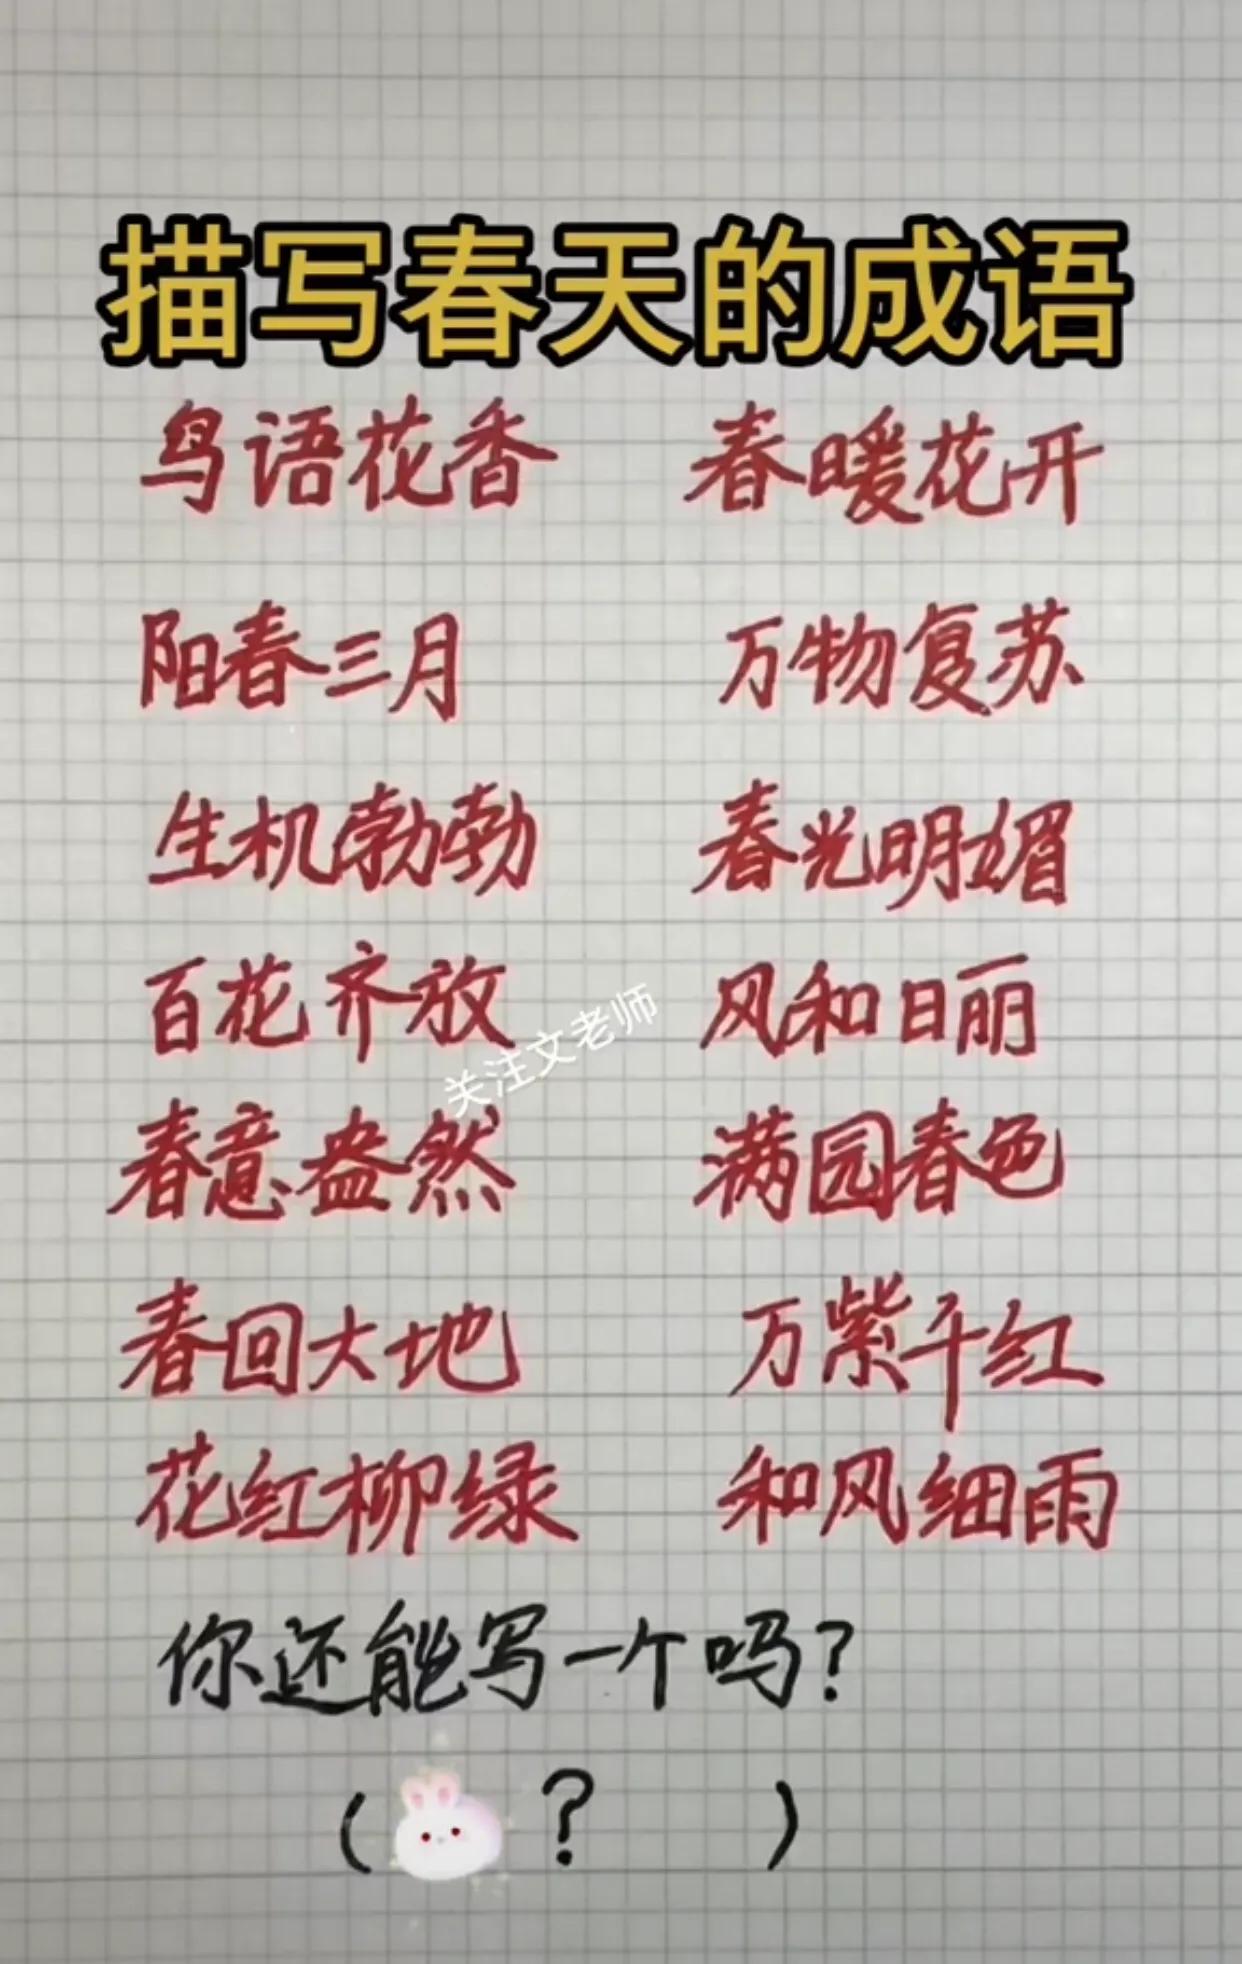 描写春天的成语
鸟语花香 春暖花开
阳春三月 万物复苏
生机勃勃 春光明媚
百花齐放 风和日丽
关注文老师
春意盎然 满园春色
春回大地 万紫千红
花红柳绿 和风细雨
你还能写一个吗?
( ? )